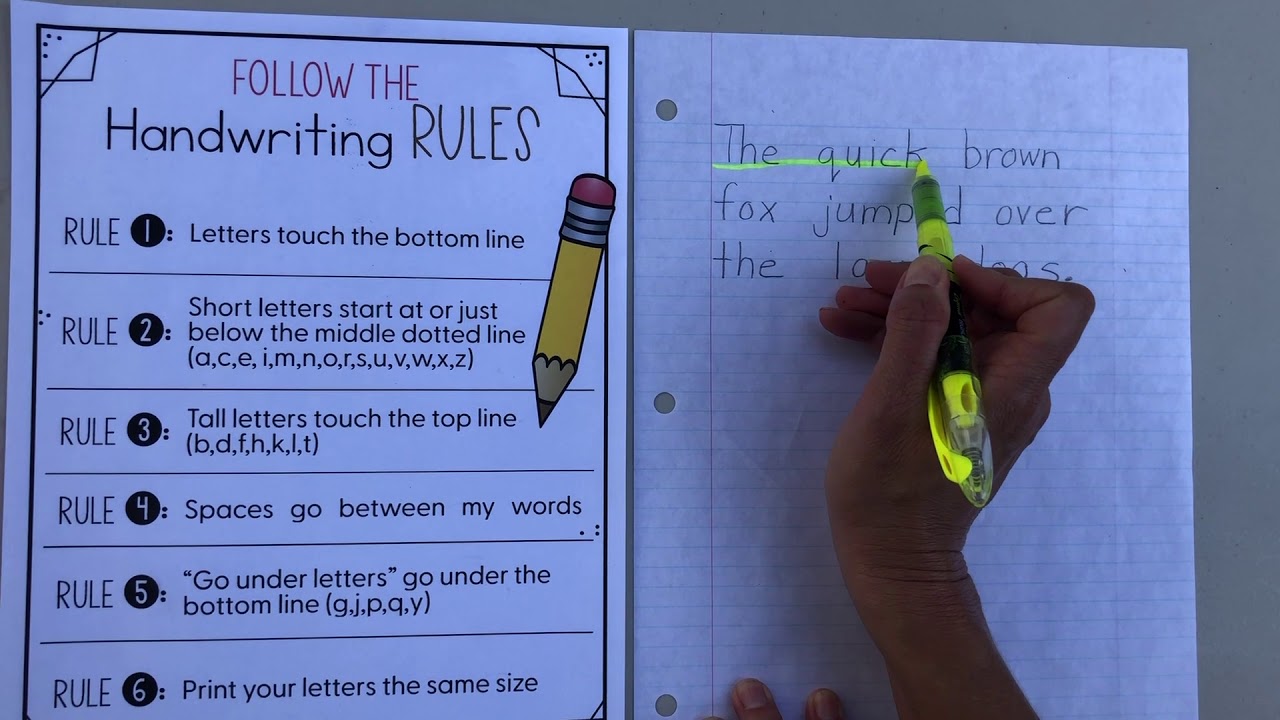 FOLLOW THE
Handwriting RULES
RULE 1: Letters touch the bottom line
RULE 2: Short letters start at or just
below the middle dotted line
(a,c,e, i,m,n,o,r,s,u,v,w,x,z)
RULE 3: Tall letters touch the top line
(b,d,f,h,k,l,t)
RULE 4: Spaces go between my words
RULE 5: “Go under letters” go under the
bottom line (g,j,p,q,y)
RULE 6: Print your letters the same size
The quick brown
fox over
the